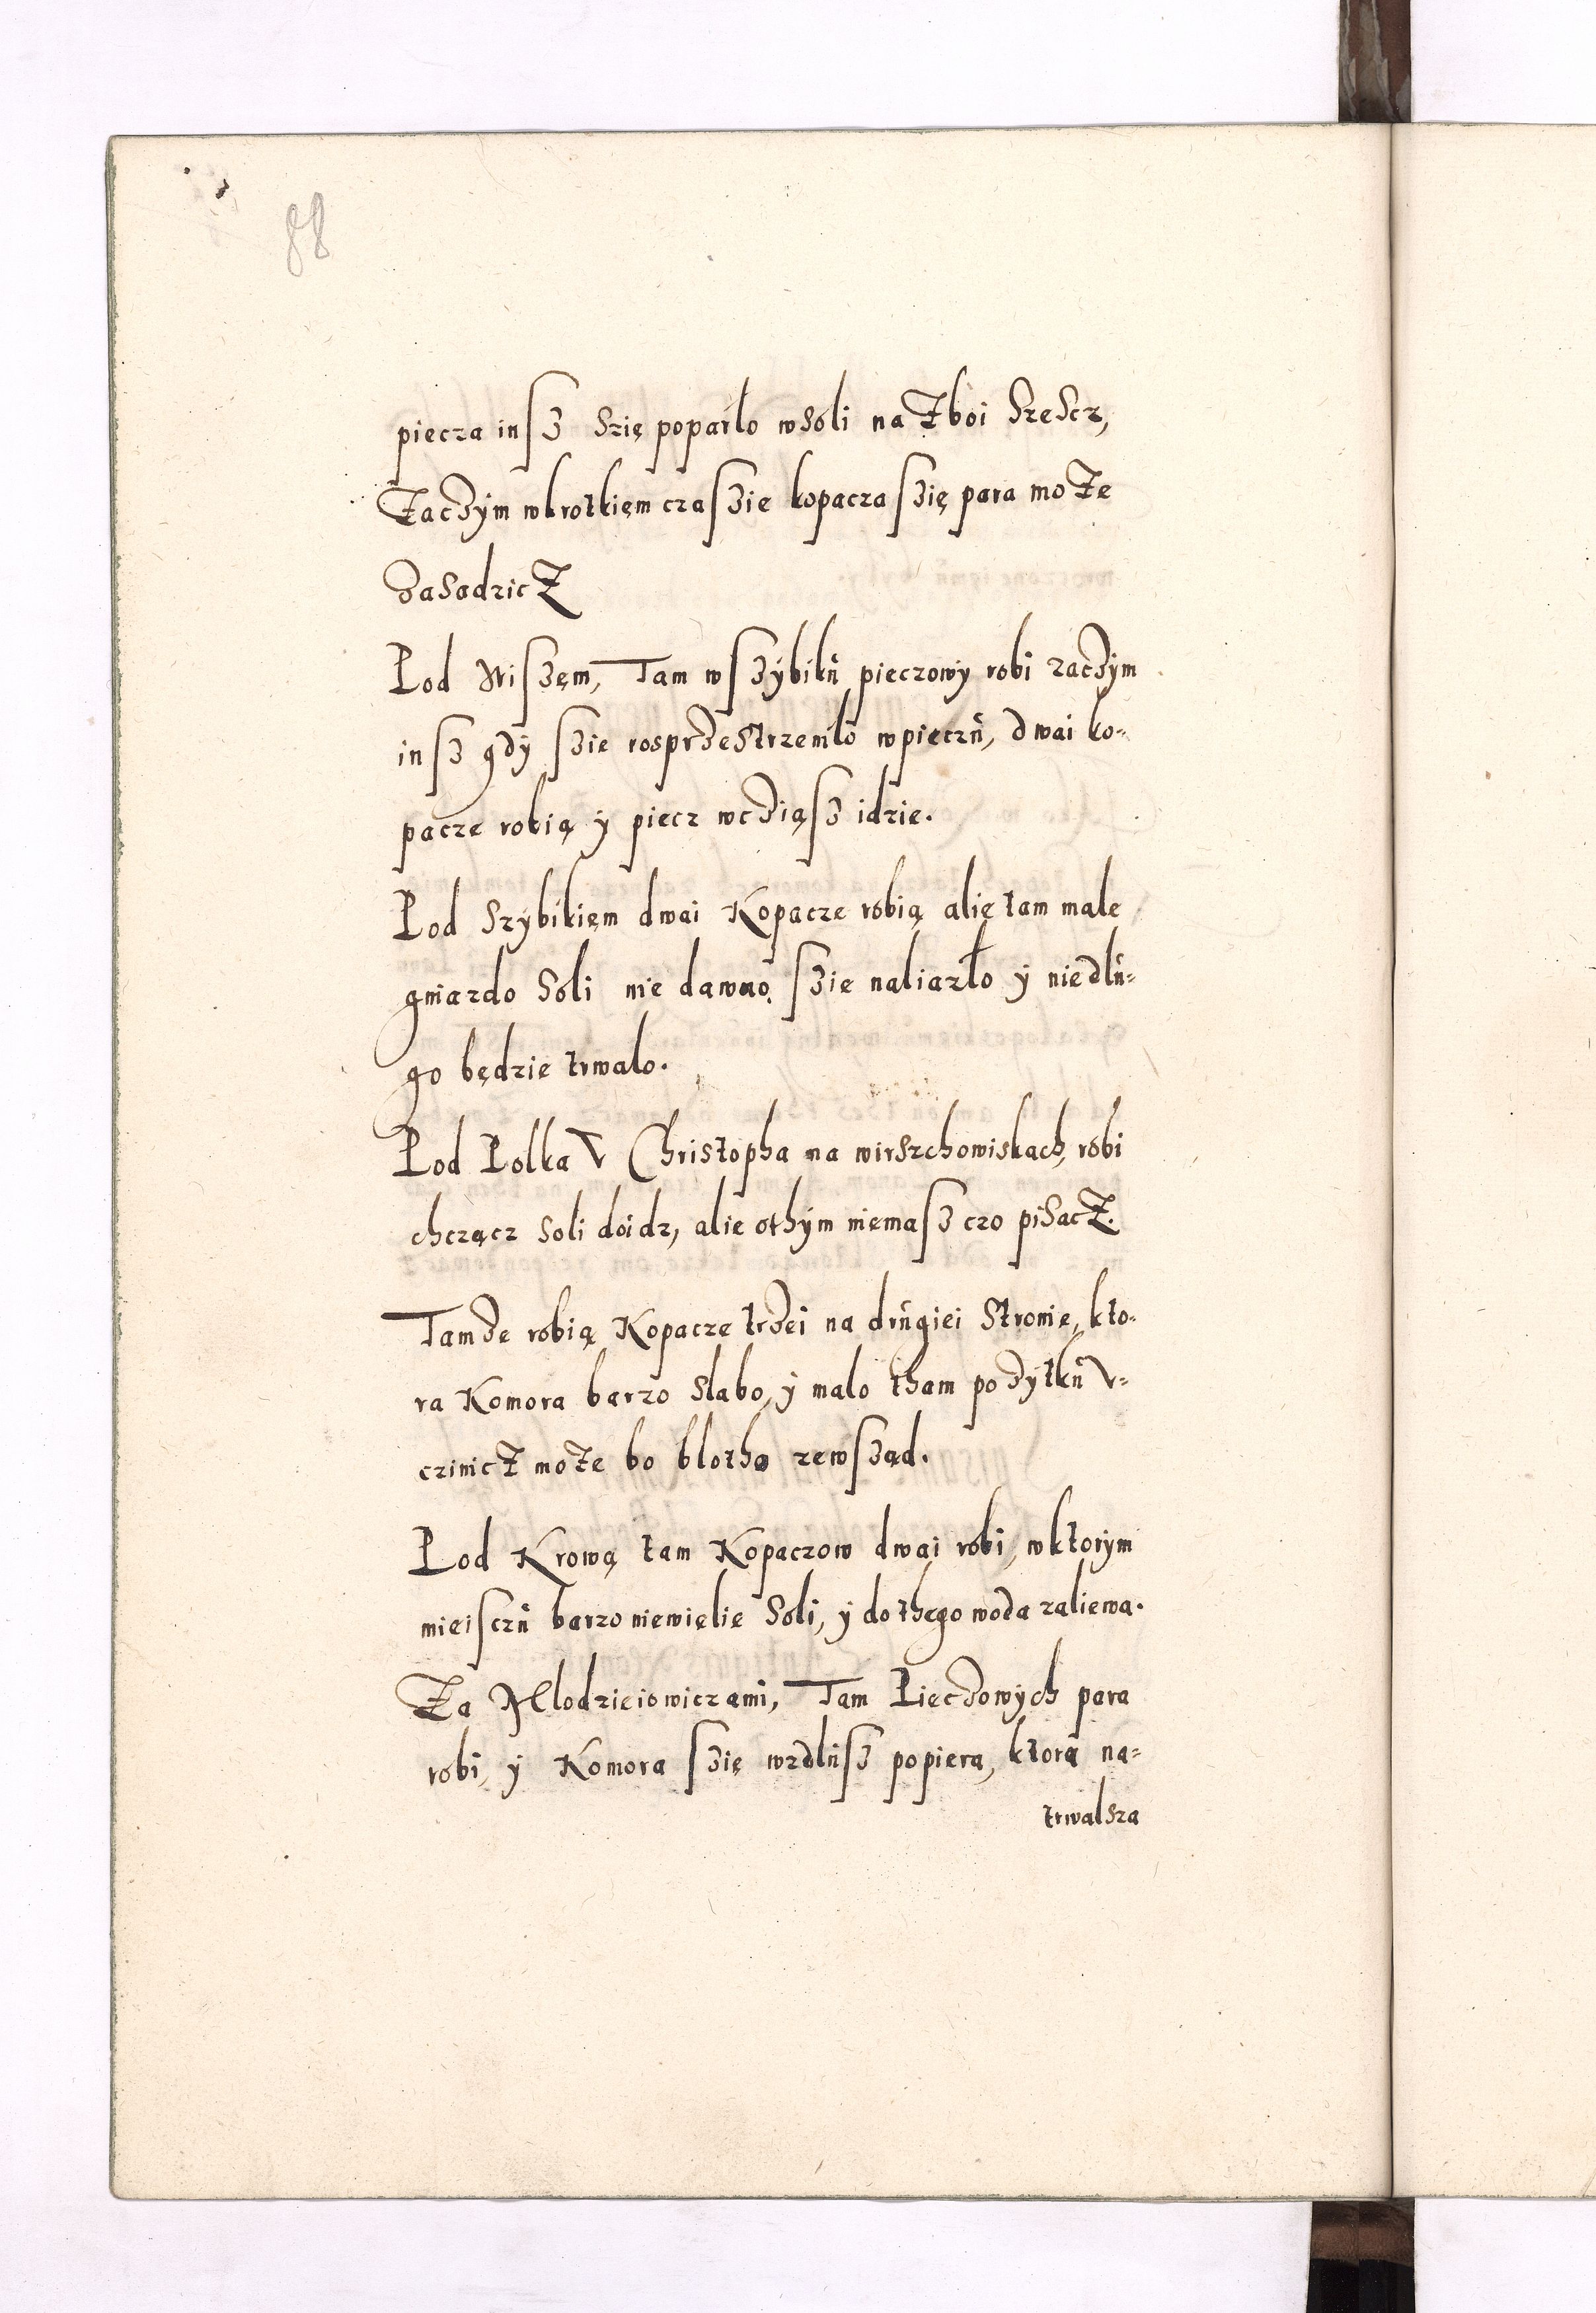 88
piecza insz Szię poparło wSoli na Zboi SzeScz,
Zaczÿm wkrotkięm czaszie kopacza szię para moZe
zaSadzicZ
Pod Wiszęm, Tam wszÿbikú pieczowÿ robi zaczÿm
insz gdÿ szie rosprzeStrzeniło wpieczú, dwai ko-
pacze robią ÿ piecz wcziąsz idzie.
Pod Szÿbikięm dwai Kopacze robią alię tam małe
gniazdo Soli nie dawno szie naliazło ÿ niedłú-
go będzie trwało.
Pod Polka V Christopha na wirszchowiskach, robi
chcącz Soli doidz, alie othÿm niemasz czo piSacZ.
Tamze robią Kopacze trzei na drúgiei Stronie, kto-
ra Komora barzo Slabo, ÿ malo tham pozÿtkú V-
czinicZ moZe bo błotho zewsząd.
Pod Krową tam Kopaczow dwai robi, wktorÿm
mieisczú barzo niewięlie Soli, ÿ do thego woda zaliewa.
Za Młodzieiowiczami, Tam Pieczowych para
robi, ÿ Komora szię wzdlúsz popiera, ktora na-
trwalSza